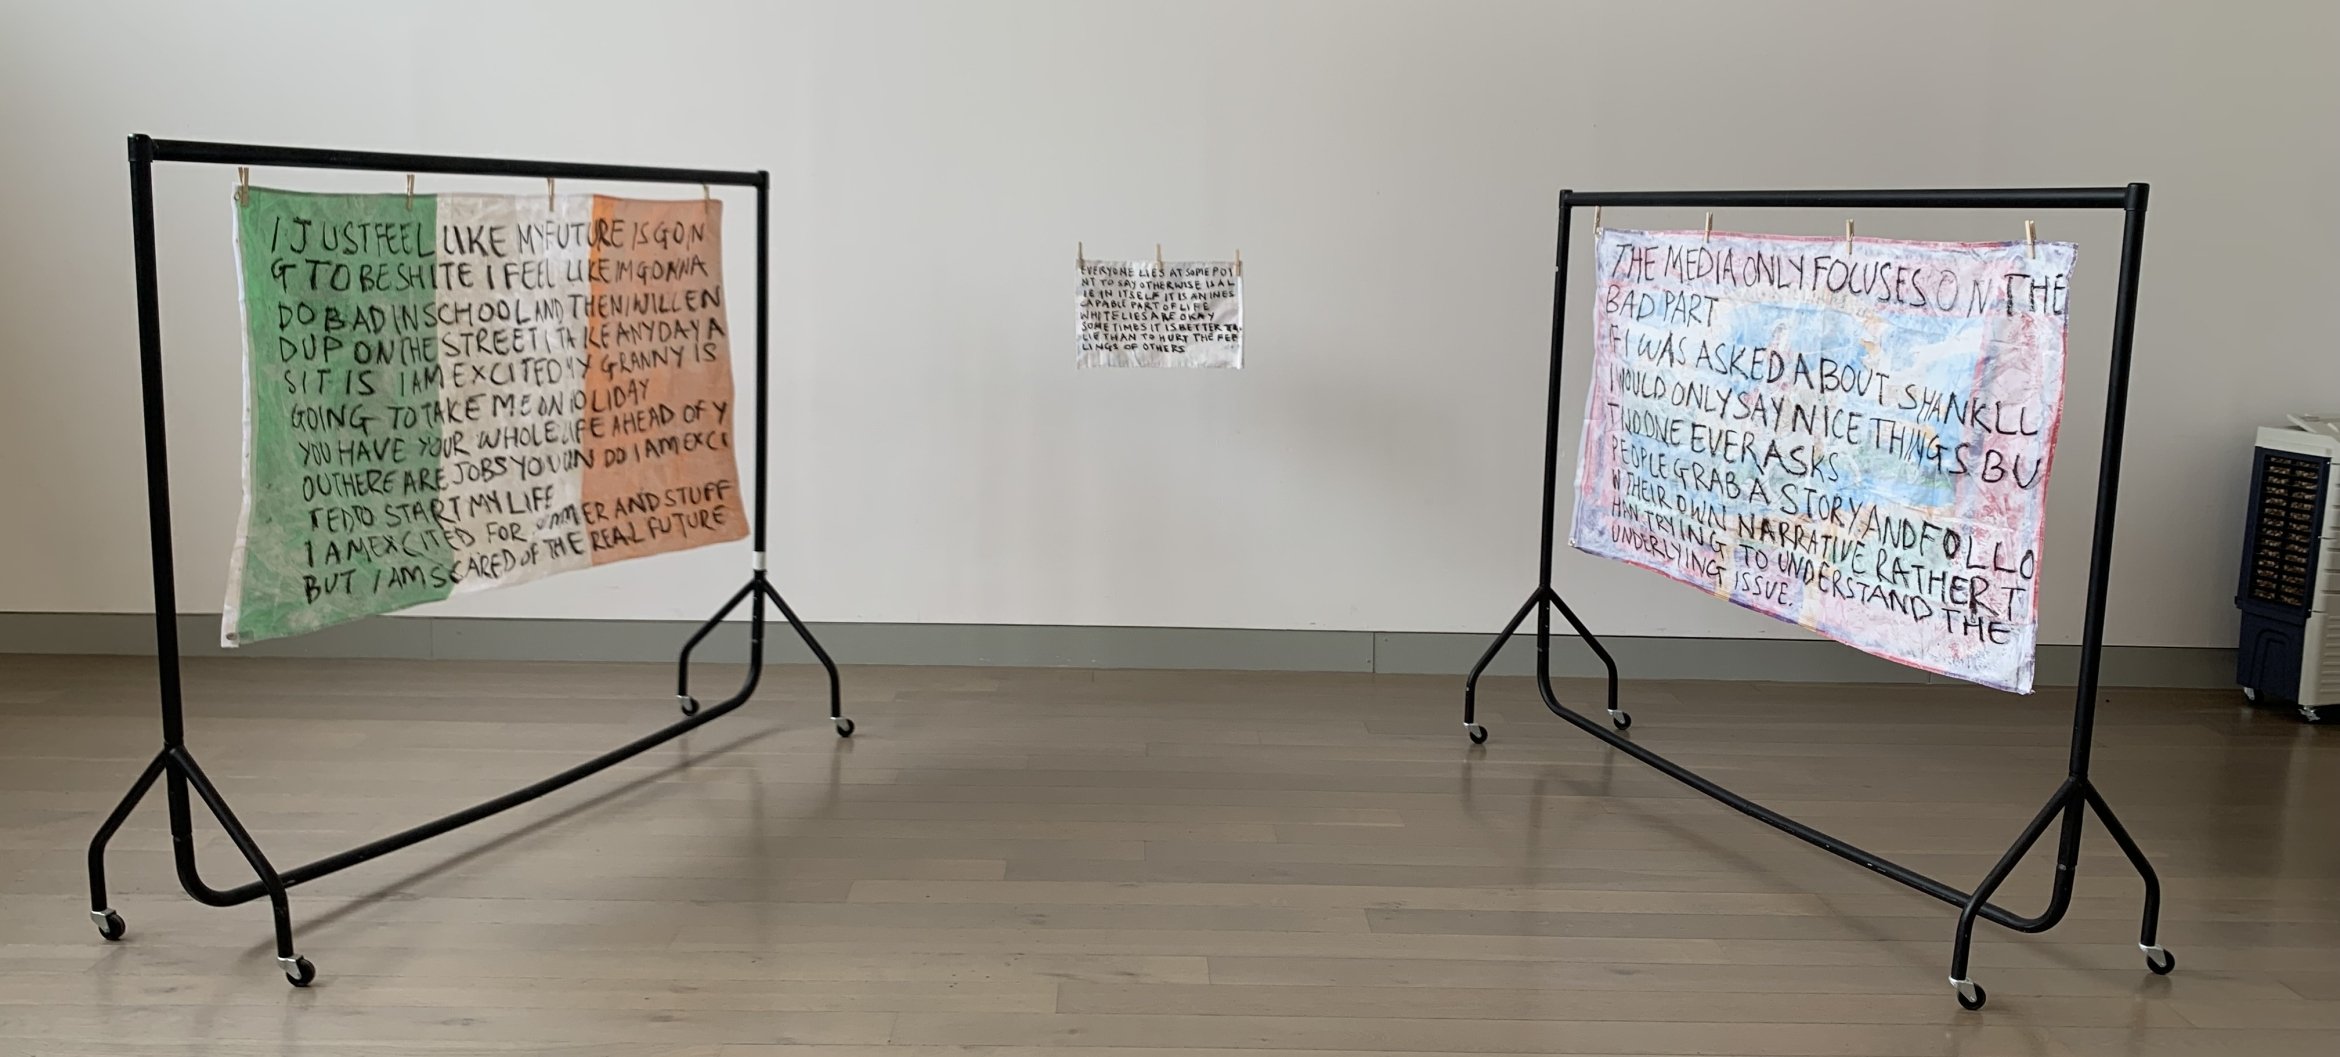 I JUSTFEEL LIKE MYFUTURE ISGOIN
G TO BESHITE I FEEL LIKE IMGONNA
DO BAD INSCHOOL AND THENIWILLEN
DUP ONTHE STREET I TAKE ANYDAY A
SIT IS IAM EXCITED MY GRANNY IS
GOING TO TAKE ME ON HOLIDAY
YOU HAVE YOUR WHOLE LIFE AHEAD OF Y
OUTHERE ARE JOBSYOUCAN DO IAMEXCI
TEDTO START MY LIFE
I AMEXCITED FOR SUMMER AND STUFF
BUT I AMSCARED OF THE REAL FUTURE
EVERYONE LIES AT SOME POI
NT TO SAY OTHERWISE IS A L
IE IN ITSELF IT IS AN INES
CAPABLE PART OF LIFE
WHITELIES ARE OKAY
SOMETIMES IT IS BETTER TO
LIE THAN TO HURT THE FEE
LINGS OF OTHERS
THE MEDIA ONLY FOCUSES ON THE
BAD PART
IF I WAS ASKED ABOUT SHANKLL
I WOULD ONLYSAY NICE THINGS BU
TNOONE EVERASKS
PEOPLE GRAB A STORY ANDFOLLO
W THEIR OWN NARRATIVE RATHERT
HAN TRYING TO UNDERSTAND THE
UNDERLYING ISSUE.